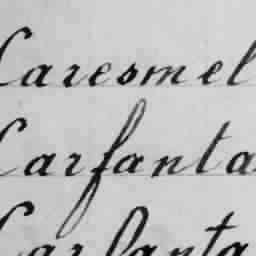 Caresmel
Carfanta
Carfanta